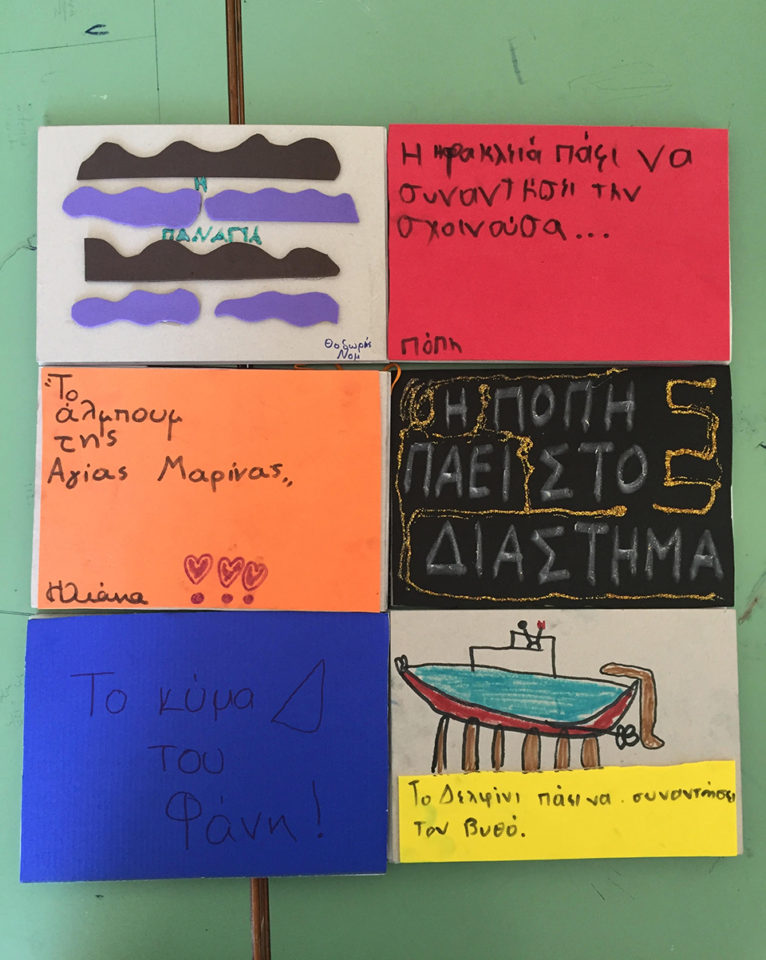 Η
ΠΑΝΑΓΙΑ
Θοδωρής
Νομ
Η ηρακλειά πάει να
συναντήσει την
σχοινούσα...
Πόπη
"Το
άλμπουμ
της
Αγίας Μαρίνας,,
Ηλιάνα
Η ΠΟΠΗ
ΠΑΕΙ ΣΤΟ
ΔΙΑΣΤΗΜΑ
Το κύμα
του
Φάνη!
Το Δελφίνι πάει να συναντήσει
τον Βυθό.